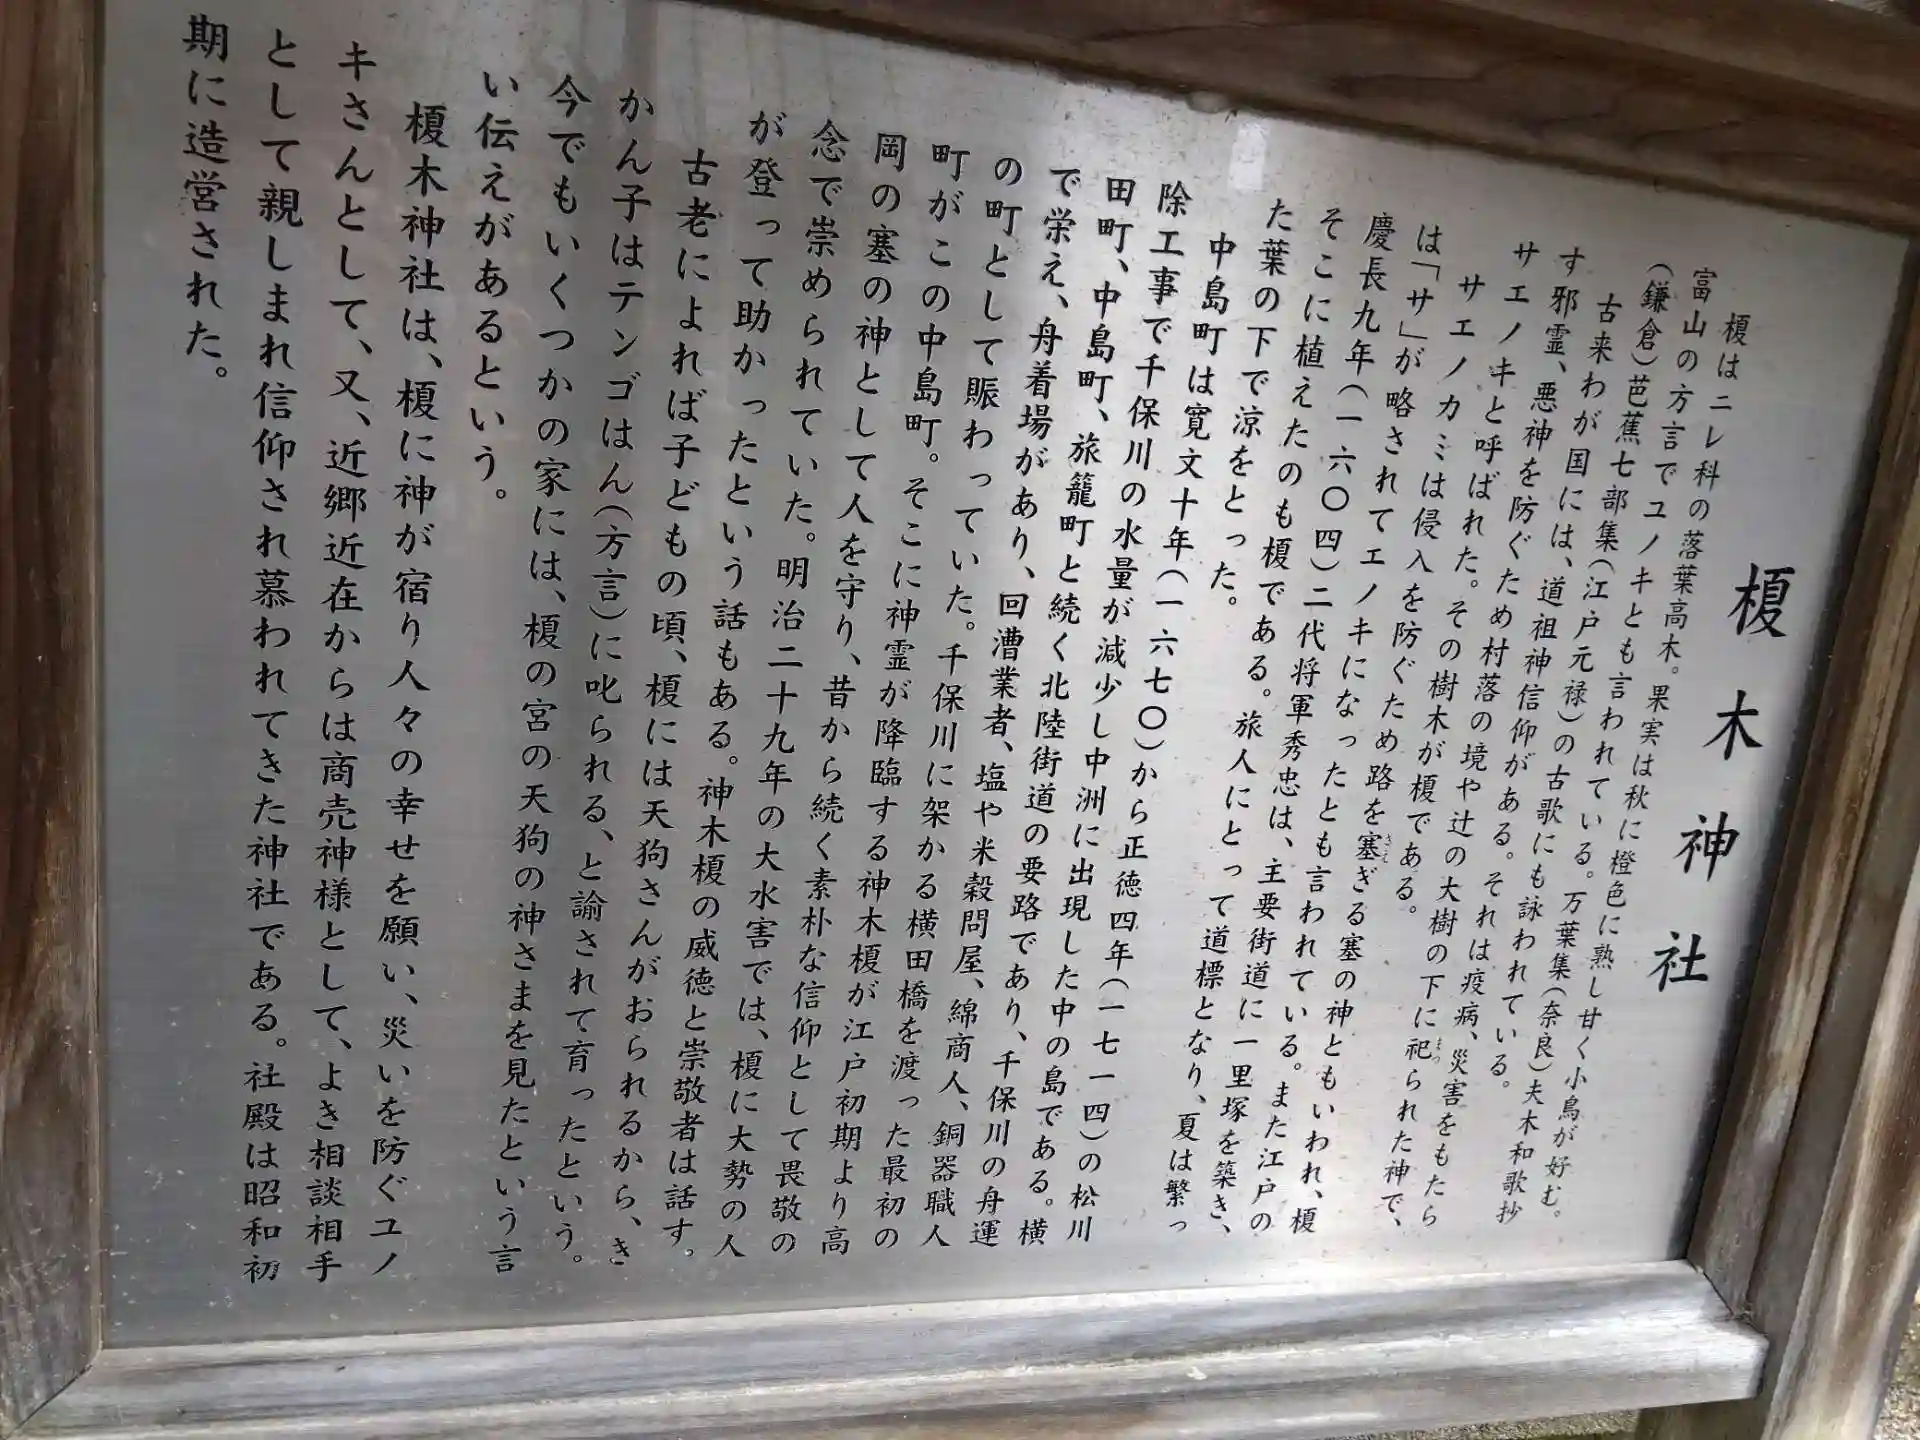 榎木神社
榎はニレ科の落葉高木。果実は秋に橙色に熟し甘く小鳥が好む。
富山の方言でユノキとも言われている。万葉集（奈良）夫木和歌抄
（鎌倉）芭蕉七部集（江戸元禄）の古歌にも詠われている。
古来わが国には、道祖神信仰がある。それは疫病、災害をもたら
す邪霊、悪神を防ぐため村落の境や辻の大樹の下に祀られた神で、
サエノキと呼ばれた。その樹木が榎である。
サエノカミは侵入を防ぐため路を塞ぎる塞の神ともいわれ、榎
は「サ」が略されてエノキになったとも言われている。また江戸の
慶長九年（一六〇四）二代将軍秀忠は、主要街道に一里塚を築き、
そこに植えたのも榎である。旅人にとって道標となり、夏は繁っ
た葉の下で涼をとった。
中島町は寛文十年（一六七〇）から正徳四年（一七一四）の松川
除工事で千保川の水量が減少し中洲に出現した中の島である。横
田町、中島町、旅籠町と続く北陸街道の要路であり、千保川の舟運
で栄え、舟着場があり、回漕業者、塩や米穀問屋、綿商人、銅器職人
の町として賑わっていた。千保川に架かる横田橋を渡った最初の
町がこの中島町。そこに神霊が降臨する神木榎が江戸初期より高
岡の塞の神として人を守り、昔から続く素朴な信仰として畏敬の
念で崇められていた。明治二十九年の大水害では、榎に大勢の人
が登って助かったという話もある。神木榎の威徳と崇敬者は話す。
古老によれば子どもの頃、榎には天狗さんがおられるから、き
かん子はテンゴはん（方言）に叱られる、と諭されて育ったという。
今でもいくつかの家には、榎の宮の天狗の神さまを見たという言
い伝えがあるという。
榎木神社は、榎に神が宿り人々の幸せを願い、災いを防ぐユノ
キさんとして、又、近郷近在からは商売神様として、よき相談相手
として親しまれ信仰され慕われてきた神社である。社殿は昭和初
期に造営された。